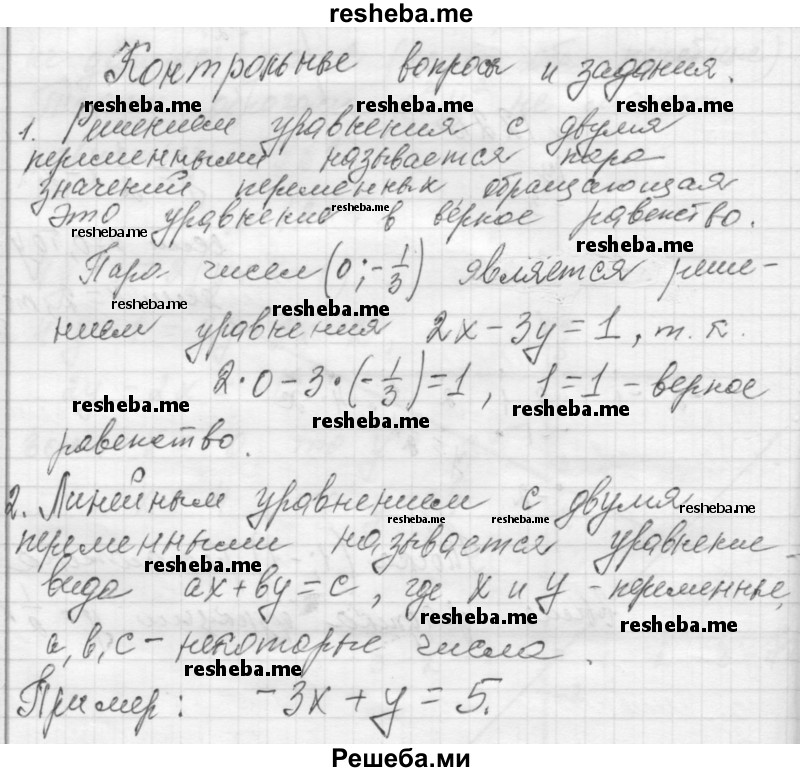 resheba.me
Контрольные вопросы и задания.
resheba.me resheba.me resheba.me
1. Решением уравнения с двумя
переменными называется пара
значений переменных обращающая
resheba.me
это уравнение в верное равенство.
resheba.me resheba.me
Пара чисел (0; -1/3) является реше-
resheba.me resheba.me
нием уравнения 2x - 3y = 1, т. к.
2·0 - 3·(-1/3) = 1, 1 = 1 - верное
resheba.me resheba.me resheba.me
равенство.
2. Линейным уравнением с двумя
resheba.me resheba.me resheba.me
переменными называется уравнение
resheba.me
вида ax + by = c, где x и y - переменные,
resheba.me resheba.me
a, b, c - некоторые числа.
resheba.me
Пример: -3x + y = 5.
Решеба.ми